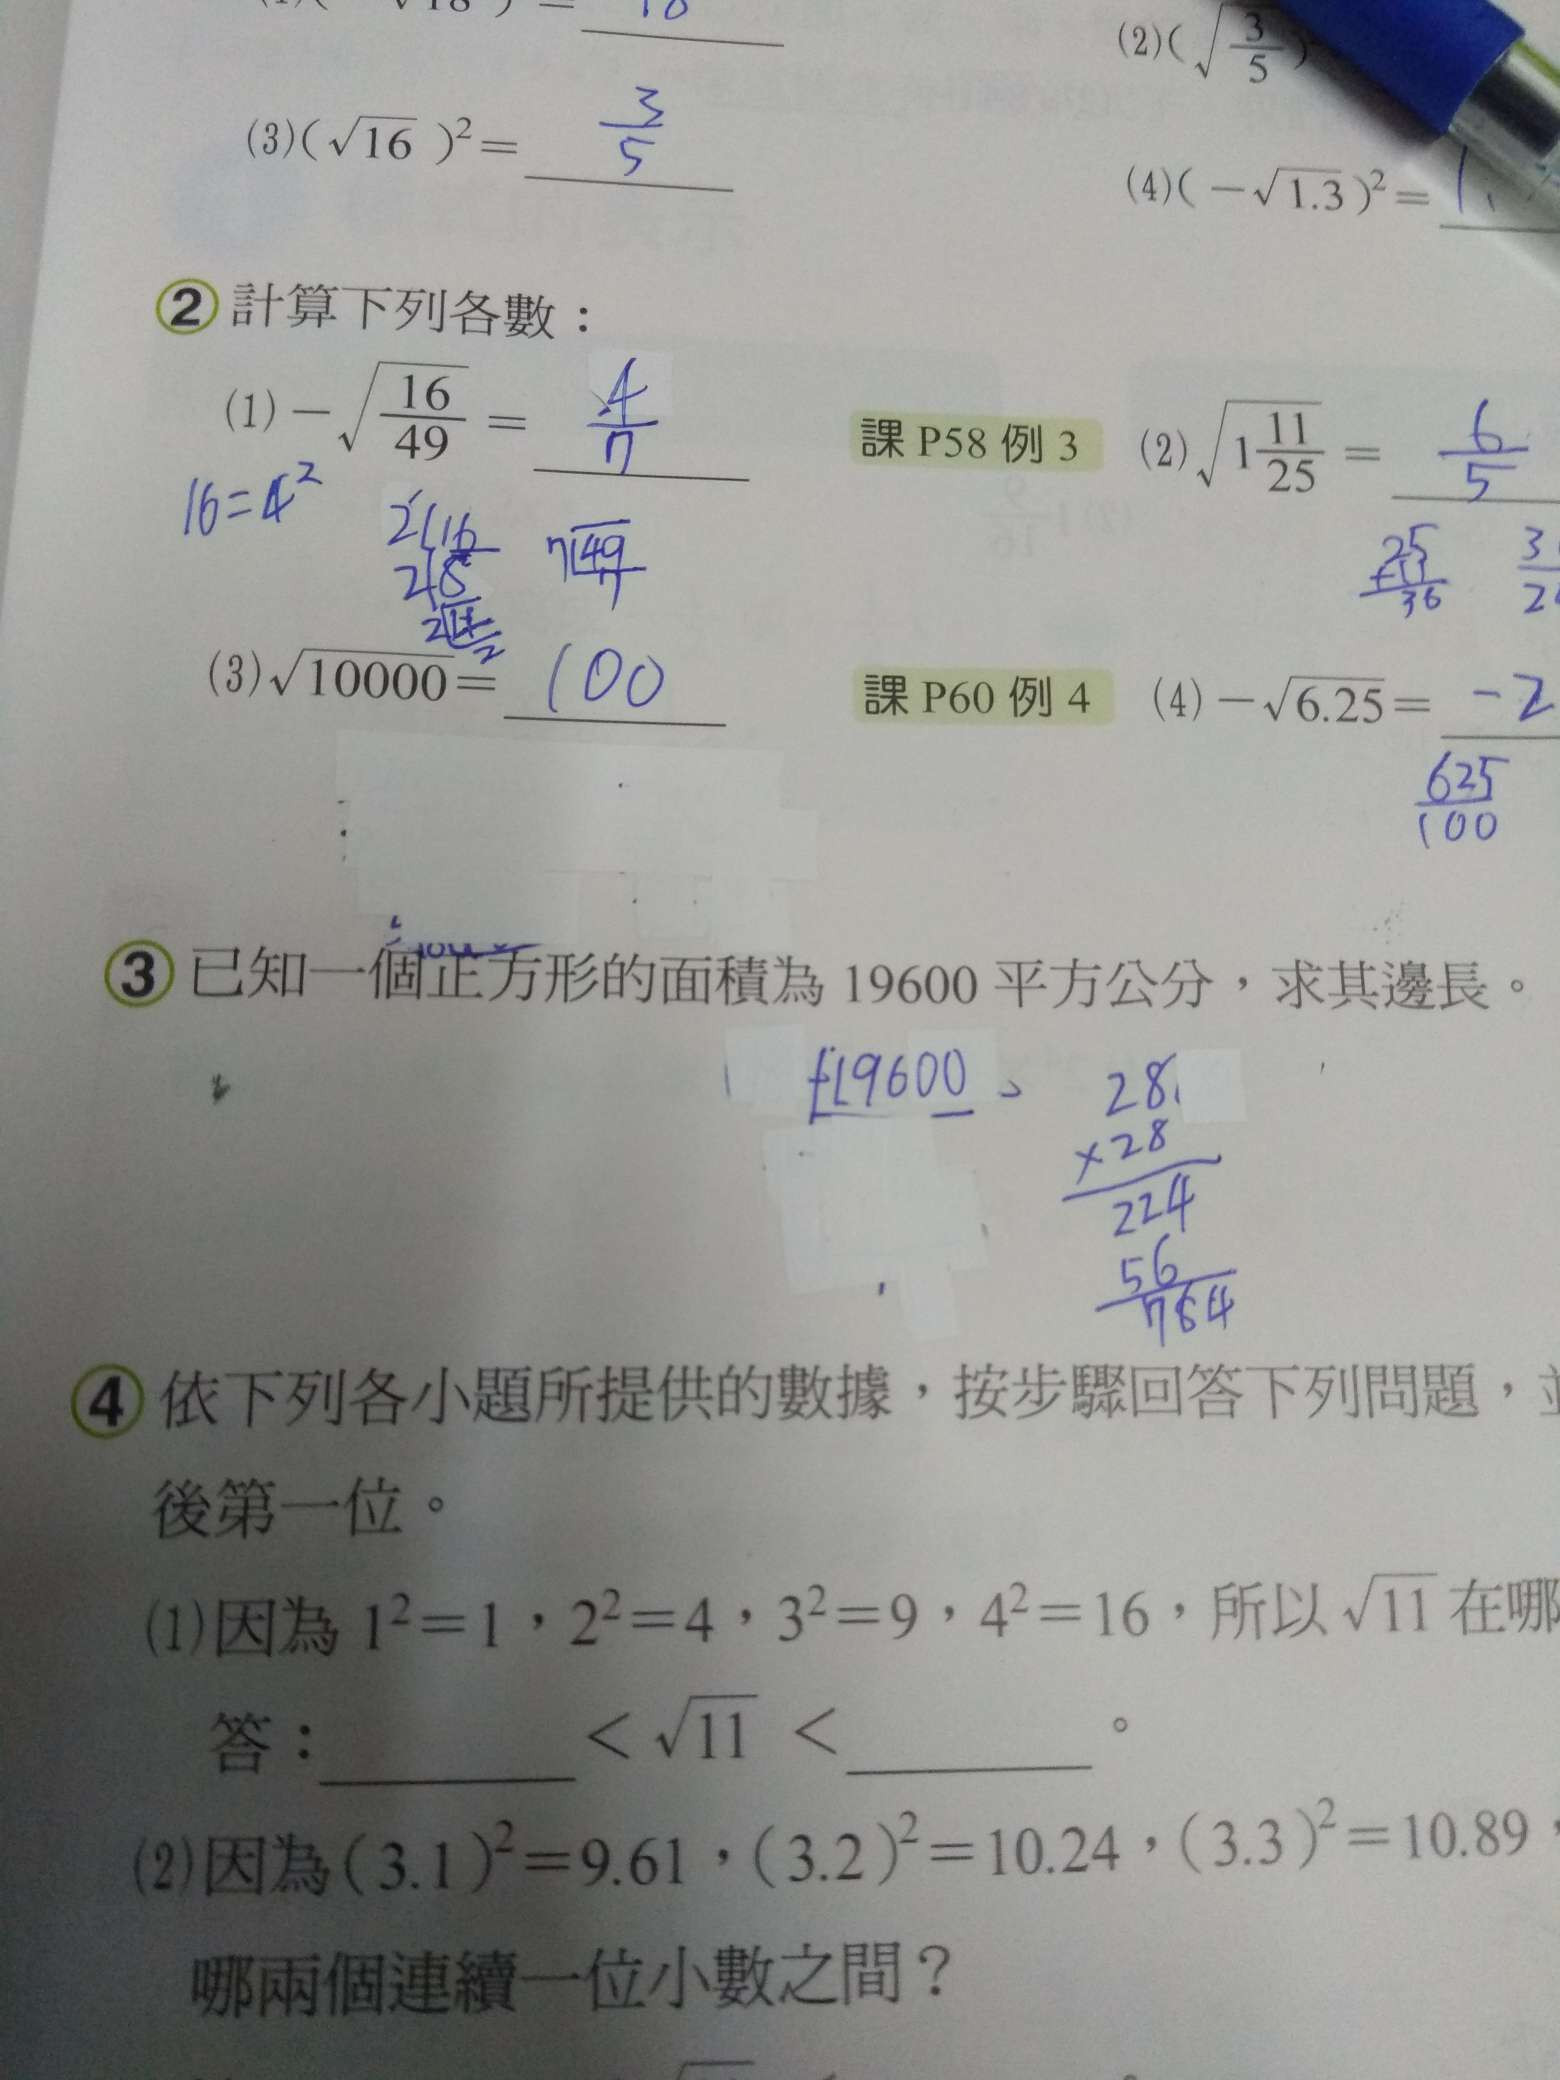 (3)(√16 )²= 3/5
(2)(√3/5 )
(4)( −√1.3 )²=
② 計算下列各數：
(1)−√16/49 = 4/7
課 P58 例 3
(2)√1 11/25 = 6/5
16=4²
2 16
2 8
2 4
2
7 49
7
25
+11
36
(3)√10000= 100
課 P60 例 4
(4)−√6.25= -2
625/100
③ 已知一個正方形的面積為 19600 平方公分，求其邊長。
19600
28
×28
224
56
784
④ 依下列各小題所提供的數據，按步驟回答下列問題，
後第一位。
(1)因為 1²=1，2²=4，3²=9，4²=16，所以 √11 在哪
答： < √11 < 。
(2)因為 ( 3.1 )²=9.61，( 3.2 )²=10.24，( 3.3 )²=10.89
哪兩個連續一位小數之間？